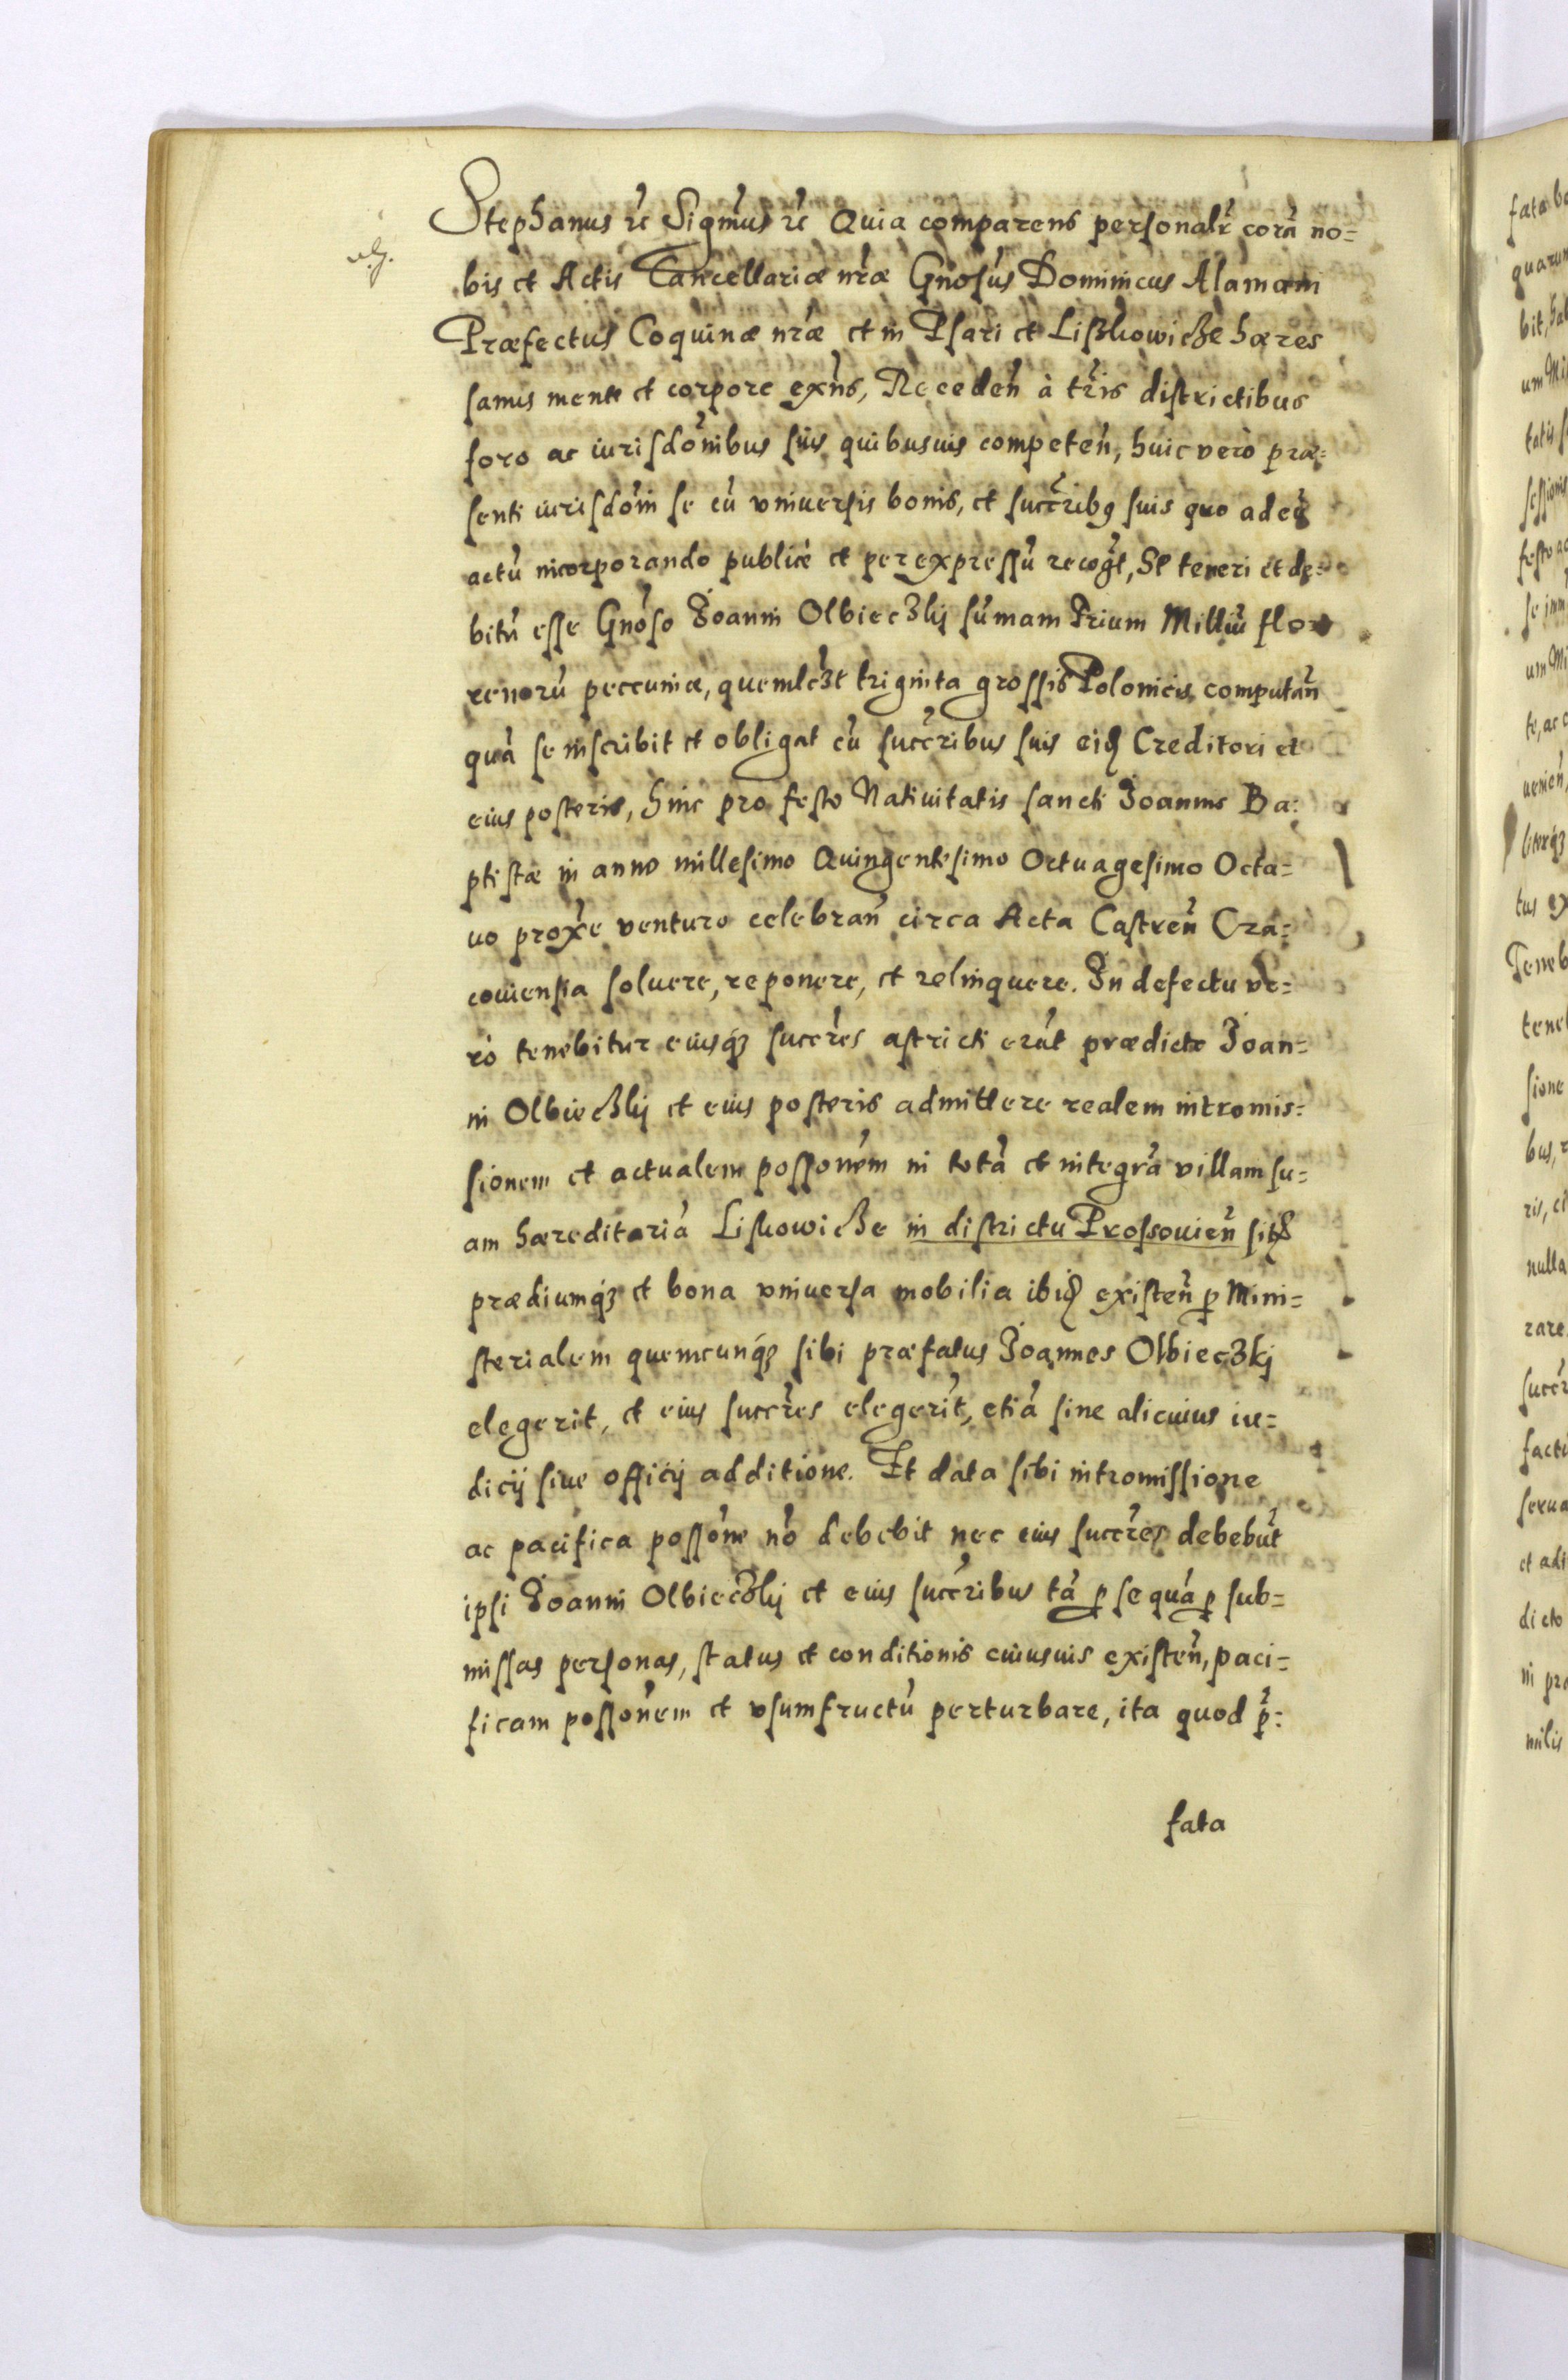 Stephanus rc̃ Sigm̃us rc̃ Quia comparens personalr̃ corã no=
bis et Actis Cancellariæ nrãe Gnõsus Dominicus Alamani
Præfectus Coquinæ nrãe et in Psari et Lißkowicze hæres
sanus mente et corpore exñs, Receden̄ à trĩs districtibus
foro ac iurisdõnibus suis quibusuis competen̄, huic verò præ=
senti iurisdõni se cũ vniuersis bonis, et succr̃ibꝫ suis quo ad eũ
actũ incorporando publicè et per expressũ recogt̃, Se teneri et de=
bitũ esse Gnõso Joanni Olbieczkij sũmam Trium Milliũ flo=
renorũ peccuniæ, quemlꝫt triginta grossis Polonicis computan̄
quã se inscribit et obligat cũ succr̃ibus suis eidꝫ Creditori et
eius posteris, hinc pro festo Natiuitatis sancti Joannis Ba=
ptistæ in anno millesimo Quingentesimo Octuagesimo Octa=
uo proxẽ venturo celebran̄ circa Acta Castren̄ Cra=
couiensia soluere, reponere, et relinquere. In defectu ve=
rò tenebitur eiusqꝫ succr̃es astricti erũt prædicto Joan=
ni Olbieczkij et eius posteris admittere realem intromis=
sionem et actualem possonẽm in totã et integrã villam su=
am hæreditariã Liskowicze in districtu Prossouien̄ sitã
prædiumqꝫ et bona vniuersa mobilia ibidꝫ existen̄ ꝑ Mini=
sterialem quemcunqꝫ sibi præfatus Joannes Olbieczkj
elegerit, et eius succr̃es elegerĩt, etiã sine alicuius iu=
dicij siue officij additione. Et data sibi intromissione
ac pacifica possõne nõ debebit nec eius succr̃es debebũt
ipsi Joanni Olbieczkij et eius succr̃ibus tã ꝑ se quã ꝑ sub=
missas personas, status et conditionis cuiusuis existen̄, paci=
ficam possonẽm et vsumfructũ perturbare, ita quod p̃=
fata